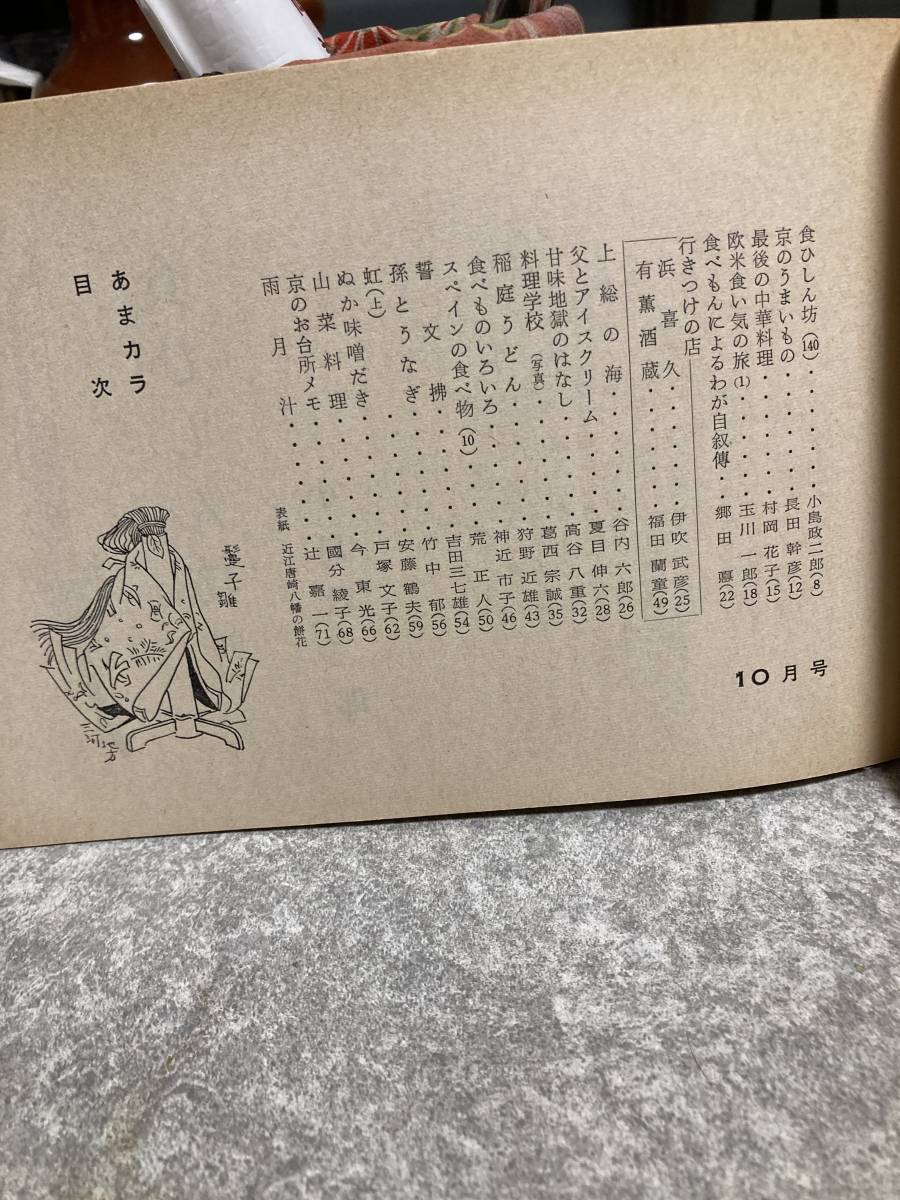 10月号
食ひしん坊(140)・・・・・・小島政二郎(8)
京のうまいもの・・・・・・長田幹彦(12)
最後の中華料理・・・・・・村岡花子(15)
欧米食い気の旅(1)・・・・・玉川一郎(18)
食べもんによるわが自叙傳・・郷田悳(22)
行きつけの店
浜喜久・・・・・・伊吹武彦(25)
有薫酒蔵・・・・・・福田蘭童(49)
上総の海・・・・・・谷内六郎(26)
父とアイスクリーム・・・・夏目伸六(28)
甘味地獄のはなし・・・・・高谷八重(32)
料理学校(写真)・・・・・・葛西宗誠(35)
稲庭うどん・・・・・・狩野近雄(43)
食べものいろいろ・・・・・神近市子(46)
スペインの食べ物(10)・・・荒正人(50)
誓文拂・・・・・・吉田三七雄(54)
孫とうなぎ・・・・・・竹中郁(56)
虹(上)・・・・・・安藤鶴夫(59)
ぬか味噌だき・・・・・・戸塚文子(62)
山菜料理・・・・・・今東光(66)
京のお台所メモ・・・・・・國分綾子(68)
雨月汁・・・・・・辻嘉一(71)
表紙 近江唐崎八幡の餅花
あまカラ
目次